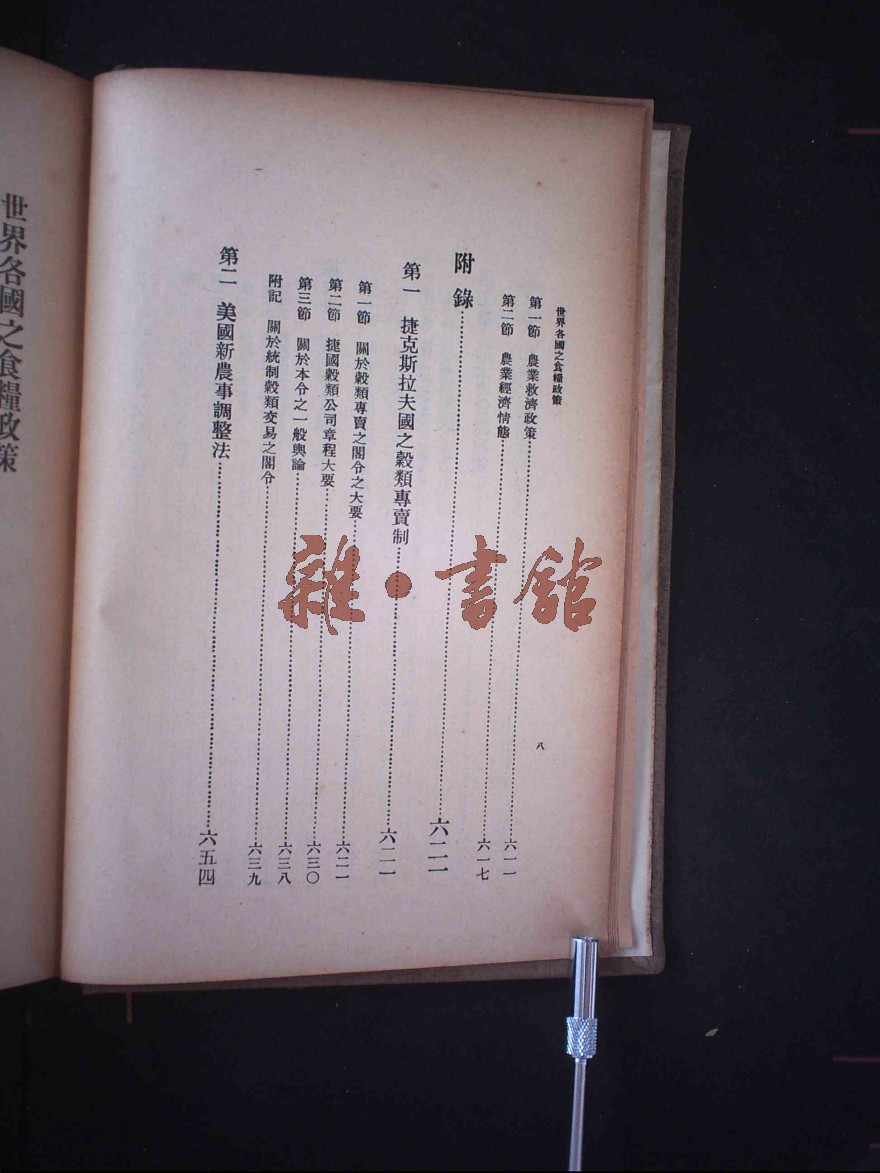 世界各國之食糧政策
八
第一節 農業救濟政策……六一一
第二節 農業經濟情態……六一七
附錄……六二一
第一 捷克斯拉夫國之穀類專賣制……六二一
第一節 關於穀類專賣之閣令之大要……六二一
第二節 捷國穀類公司章程大要……六三〇
第三節 關於本令之一般輿論……六三八
附記 關於統制穀類交易之閣令……六三九
第二 美國新農事調整法……六五四
世界各國之食糧政策
雜·書館